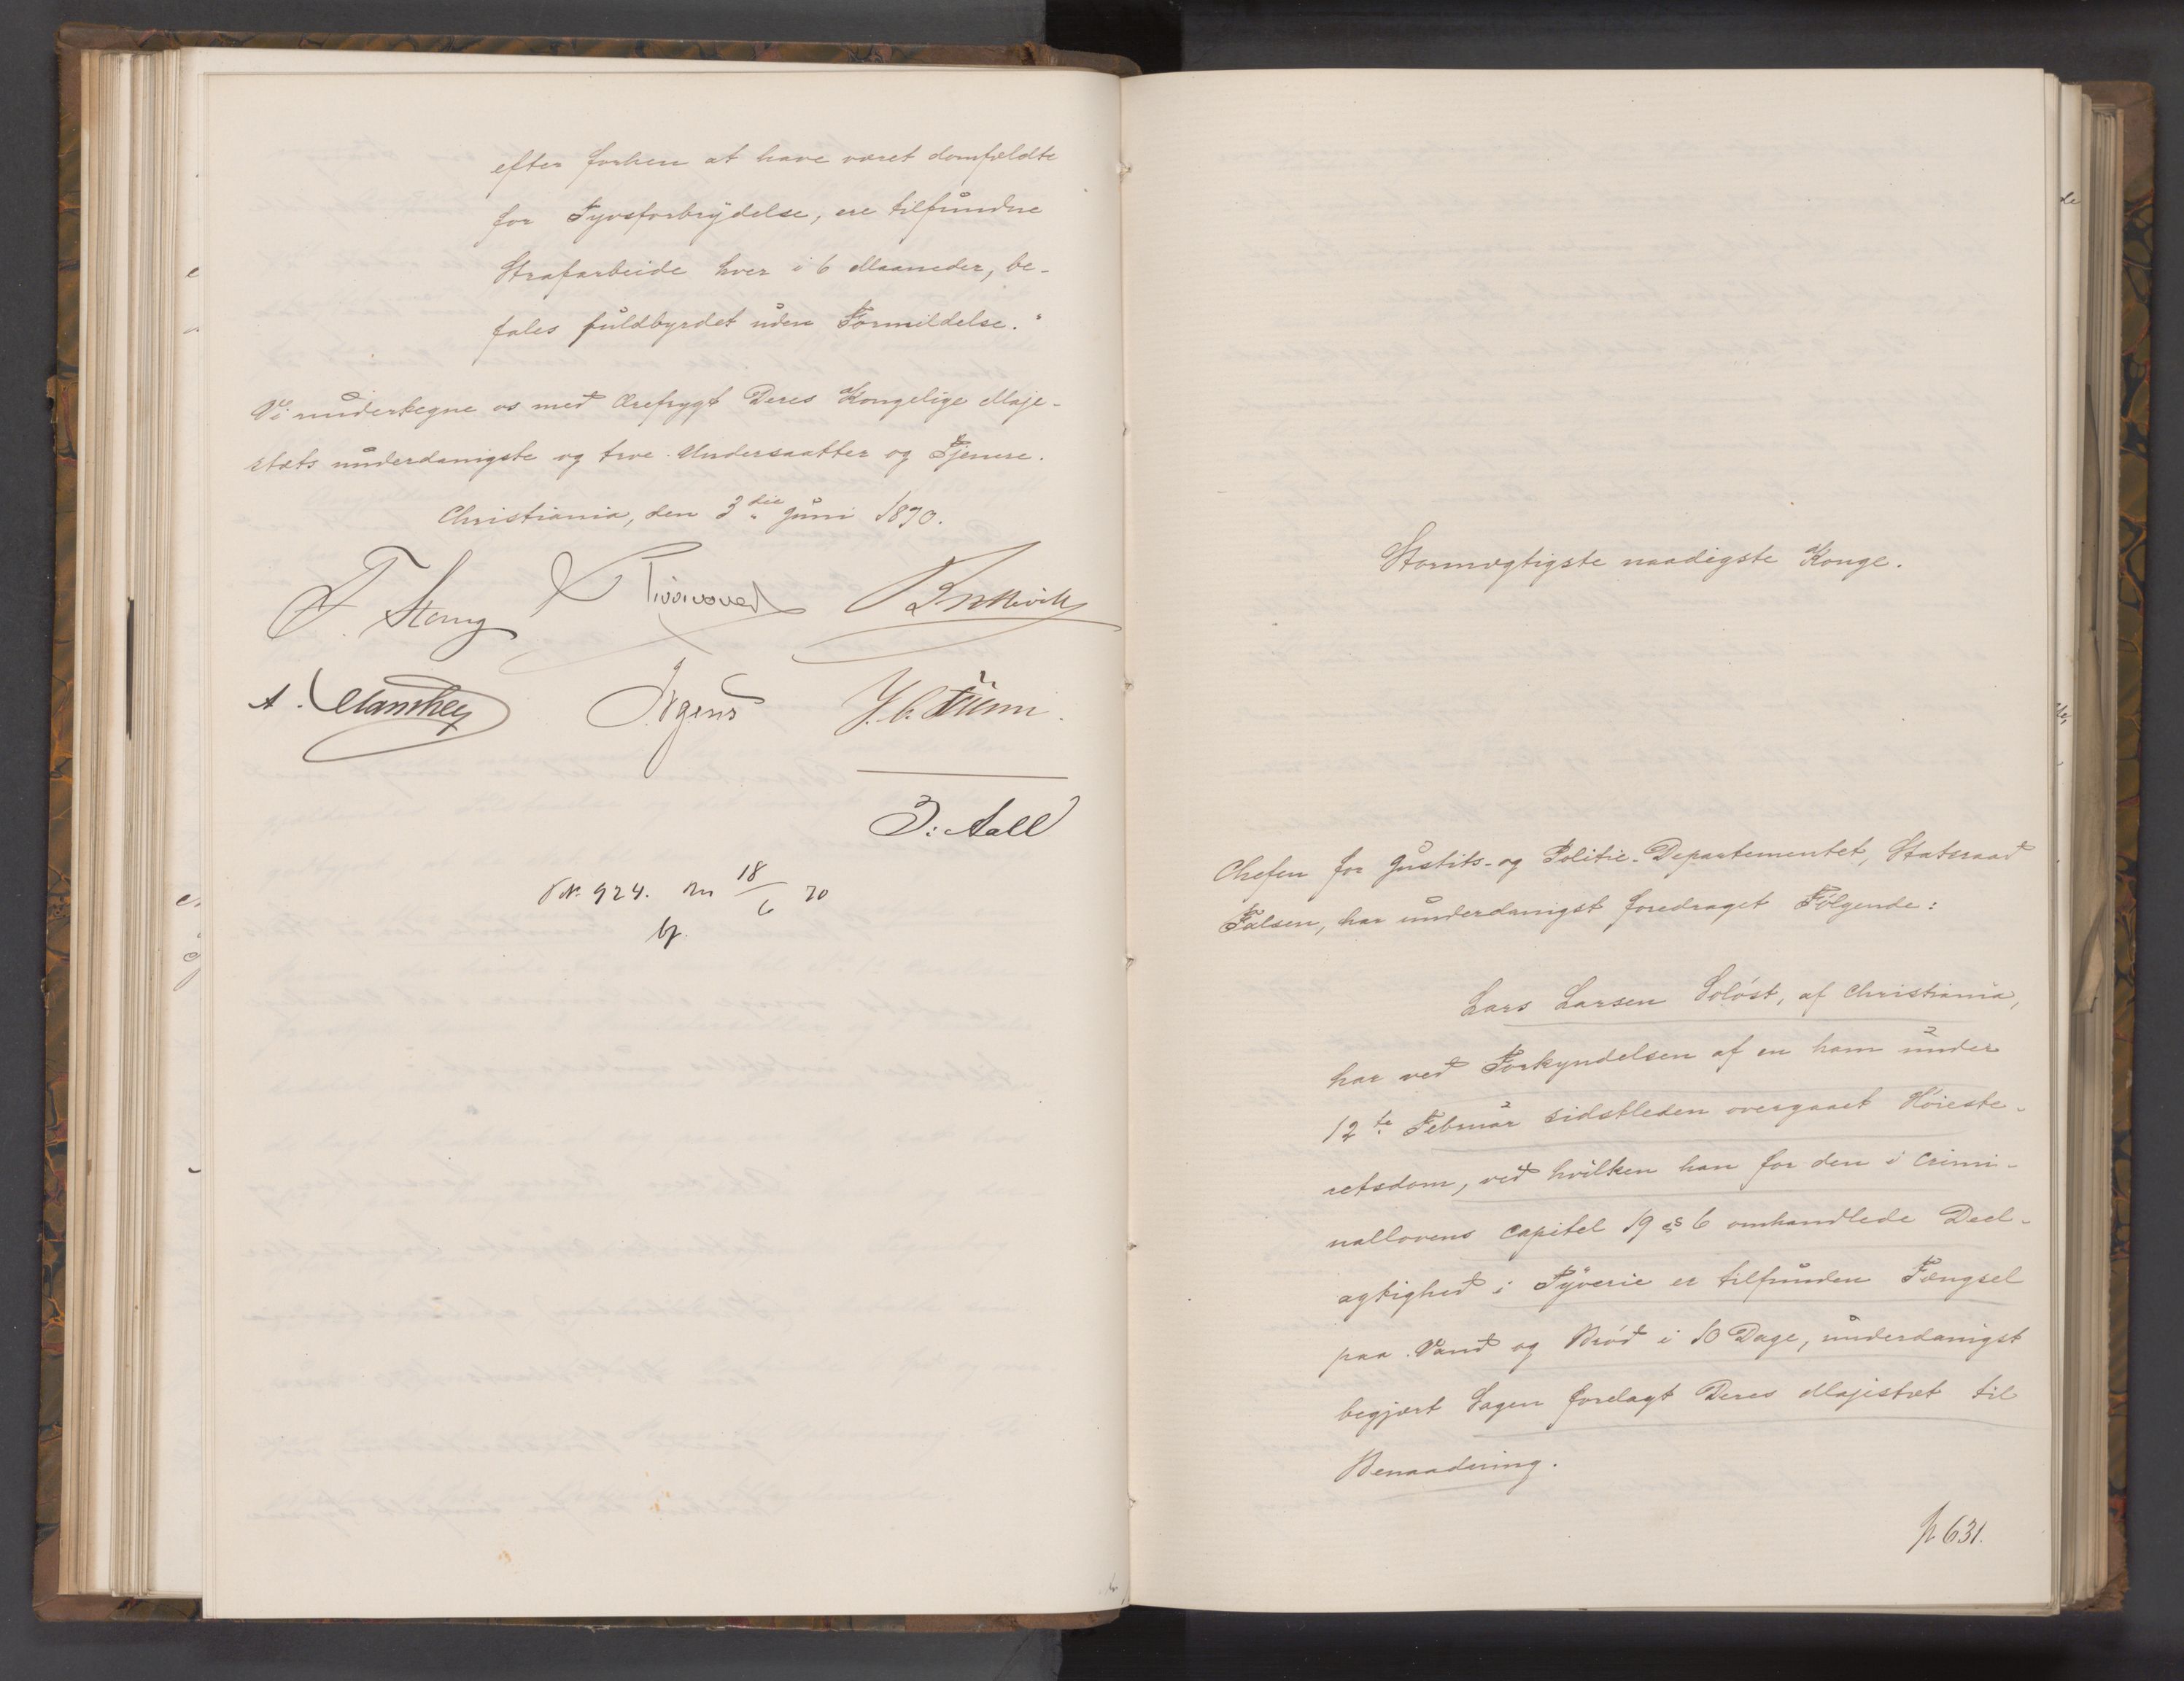 efter forhen at have været domfældte
for Tyvsforbrydelse, ere tilfundne
Strafarbeide hver i 6 Maaneder, be-
fales fuldbyrdet uden Formildelse."
Vi undertegne os med Ærefrygt Deres Kongelige Maje-
stæts underdanigste og troe Undersaatter og Tjenere.
Christiania, den 3die Juni 1870.
F. Stang
A. Manthey Irgens
J: Aall
N. 924. 18/6 70
Stormægtigste naadigste Konge.
Chefen for Justits- og Politie-Departementet, Statsraad
Falsen, har underdanigst foredraget Følgende:
Lars Larsen Soløst, af Christiania,
har ved Forkyndelsen af en ham under
12te Februar sidstleden overgaaet Høieste-
retsdom, ved hvilken han for den i Crimi-
nallovens Capitel 19 § 6 omhandlede Deel-
agtighed i Tyverie er tilfunden Fængsel
paa Vand og Brød i 10 Dage, underdanigst
begjært Sagen forelagt Deres Majestæt til
Benaadning.
p 631.